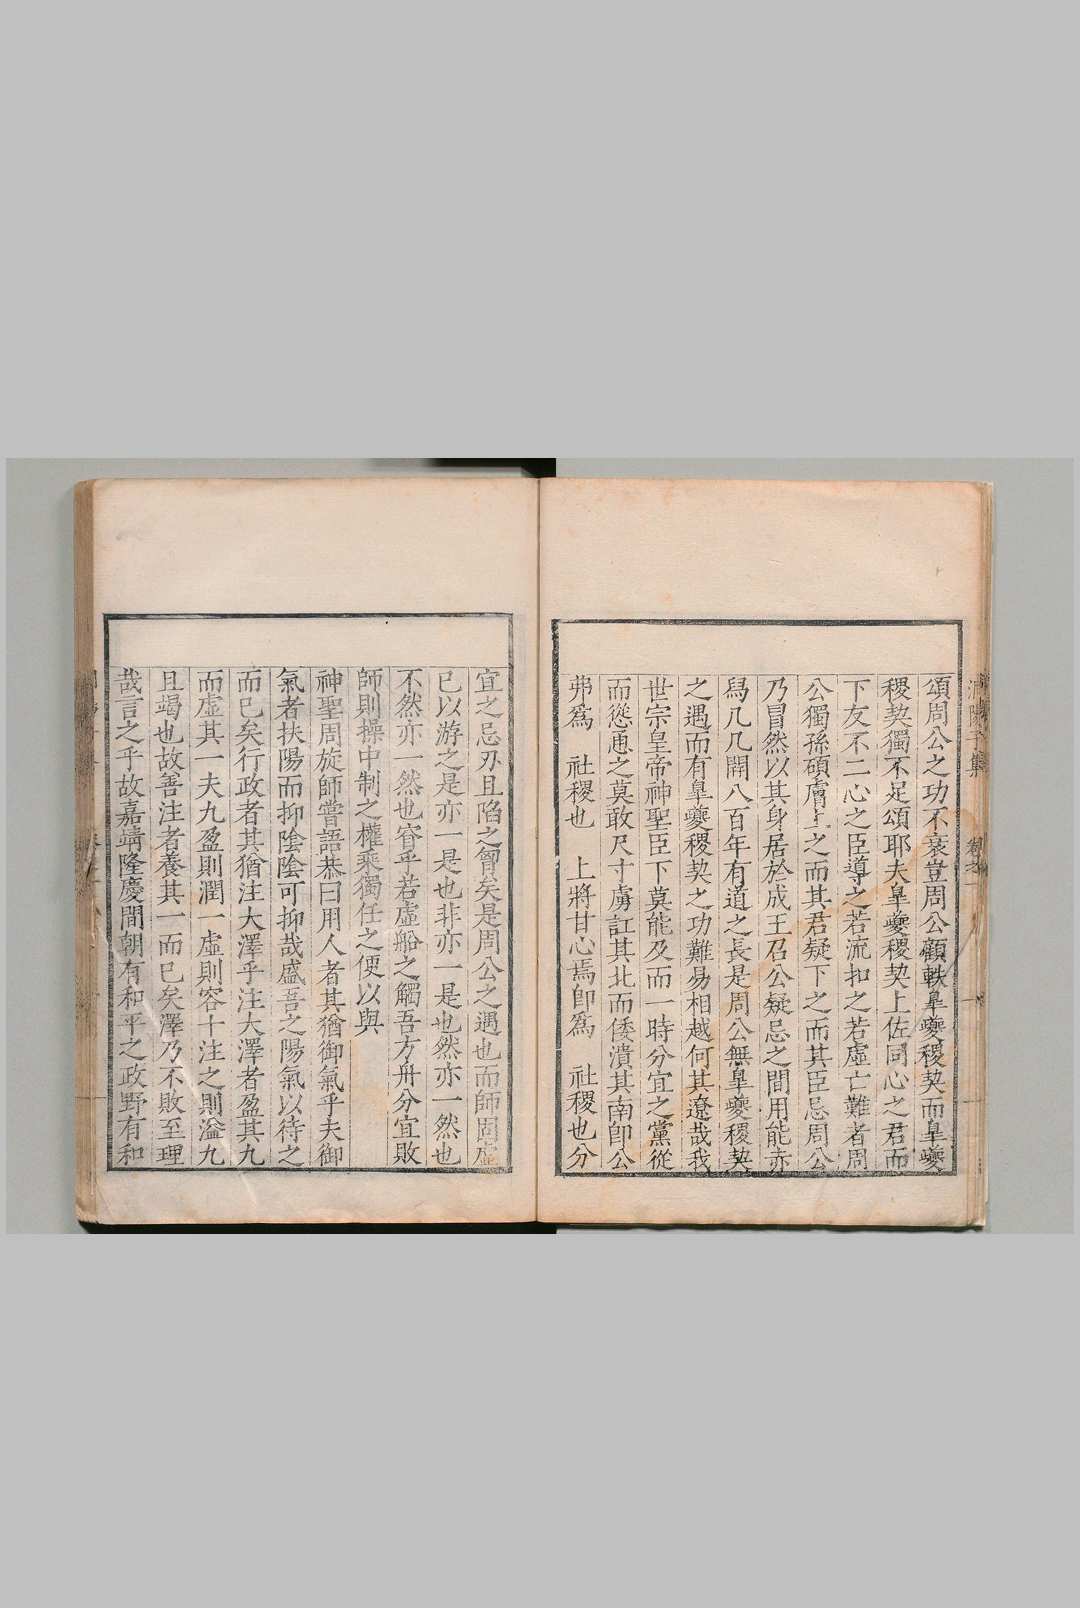 頌周公之功不衰豈周公顧軼臯夔稷契而臯夔
稷契獨不足頌耶夫臯夔稷契上佐同心之君而
下友不二心之臣導之若流扣之若虛亡難者周
公獨孫碩膚上之而其君疑下之而其臣忌周公
乃冒然以其身居於成王召公疑忌之間用能亦
舄几几開八百年有道之長是周公無臯夔稷契
之遇而有臯夔稷契之功難易相越何其遼哉我
世宗皇帝神聖臣下莫能及而一時分宜之黨從
而慫恿之莫敢尺寸虜訌其北而倭潰其南卽公
弗爲 社稷也 上將甘心焉卽爲 社稷也分
宜之忌刃且陷之胷矣是周公之遇也而師固虛
已以游之是亦一是也非亦一是也然亦一然也
不然亦一然也窅乎若虛船之觸吾方舟分宜敗
師則操中制之權乘獨任之便以與
神聖周旋師嘗語恭曰用人者其猶御氣乎夫御
氣者扶陽而抑陰陰可抑哉盛吾之陽氣以待之
而已矣行政者其猶注大澤乎注大澤者盈其九
而虛其一夫九盈則潤一虛則容十注之則溢九
且竭也故善注者養其一而已矣澤乃不敗至理
哉言之乎故嘉靖隆慶間朝有和平之政野有和